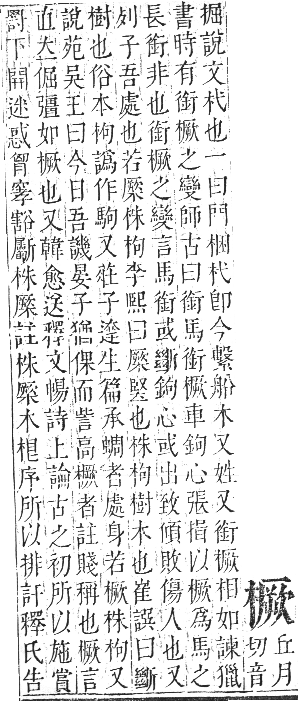 橛
丘月
切音
掘說文杙也一曰門梱杙卽今繫船木又姓又銜橛相如諫獵
書時有銜橛之變師古曰銜馬銜橛車鉤心張揖以橛爲馬之
長銜非也銜橛之變言馬銜或斷鉤心或出致傾敗傷人也又
列子吾處也若橜株枸李熙曰橜竪也株枸樹木也崔譔曰斷
樹也俗本枸譌作駒又莊子達生篇承蜩者處身若橛株枸又
說苑吳王曰今日吾譏晏子猶倮而訾高橛者註賤稱也橛言
直大倔彊如橛也又韓愈送釋文暢詩上論古之初所以施賞
罰下開迷惑胷窙豁斸株橜註株橜木根序所以排訐釋氏告